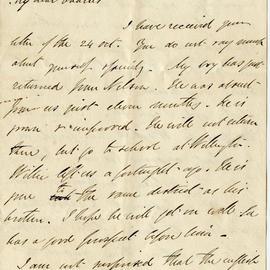 My dear Charles
I have received your
letter of the 24 Oct. You do not say much
about yourself specially. My boy has just
returned from Nelson. He was absent
from us just eleven months. He is
grown & improved. He will not return
there, but go to school at Wellington.
Willie left us a fortnight ago. He is
gone to the same district as his
brothers. I hope he will get on well. He
has a good prospect before him.
I am not surprised that the English